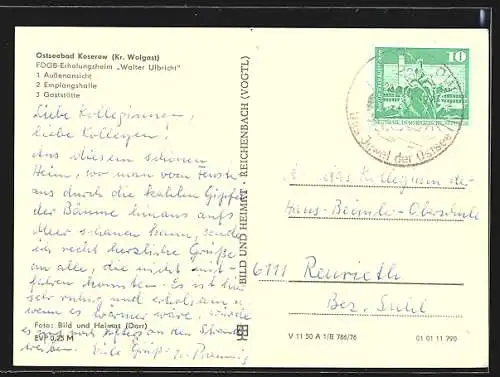 Ostseebad Koserow (Kr. Wolgast)
FDGB-Erholungsheim „Walter Ulbricht"
1 Außenansicht
2 Empfangshalle
3 Gaststätte
Liebe Kolleginnen,
liebe Kollegen!
Aus diesem schönen
Heim, wo man vom Fenster
aus durch die kahlen Gipfel
der Bäume hinaus aufs
Meer schauen kann, sende
ich recht herzliche Grüße
an alle, die nicht mit-
fahren konnten. Es ist hier
sehr ruhig und erholsam,
wenn es wärmer wäre, würde
es noch öfters an den Strand
werden. Viele Grüße
Foto: Bild und Heimat (Darr)
EVP 0,25 M
BILD UND HEIMAT · REICHENBACH (VOGTL)
10
Juwel der Ostsee
An das Kollegium der
Hans-Beimler-Oberschule
6111 Reurieth
Bez. Suhl
V 11 50 A 1/B 766/76
01 01 11 290